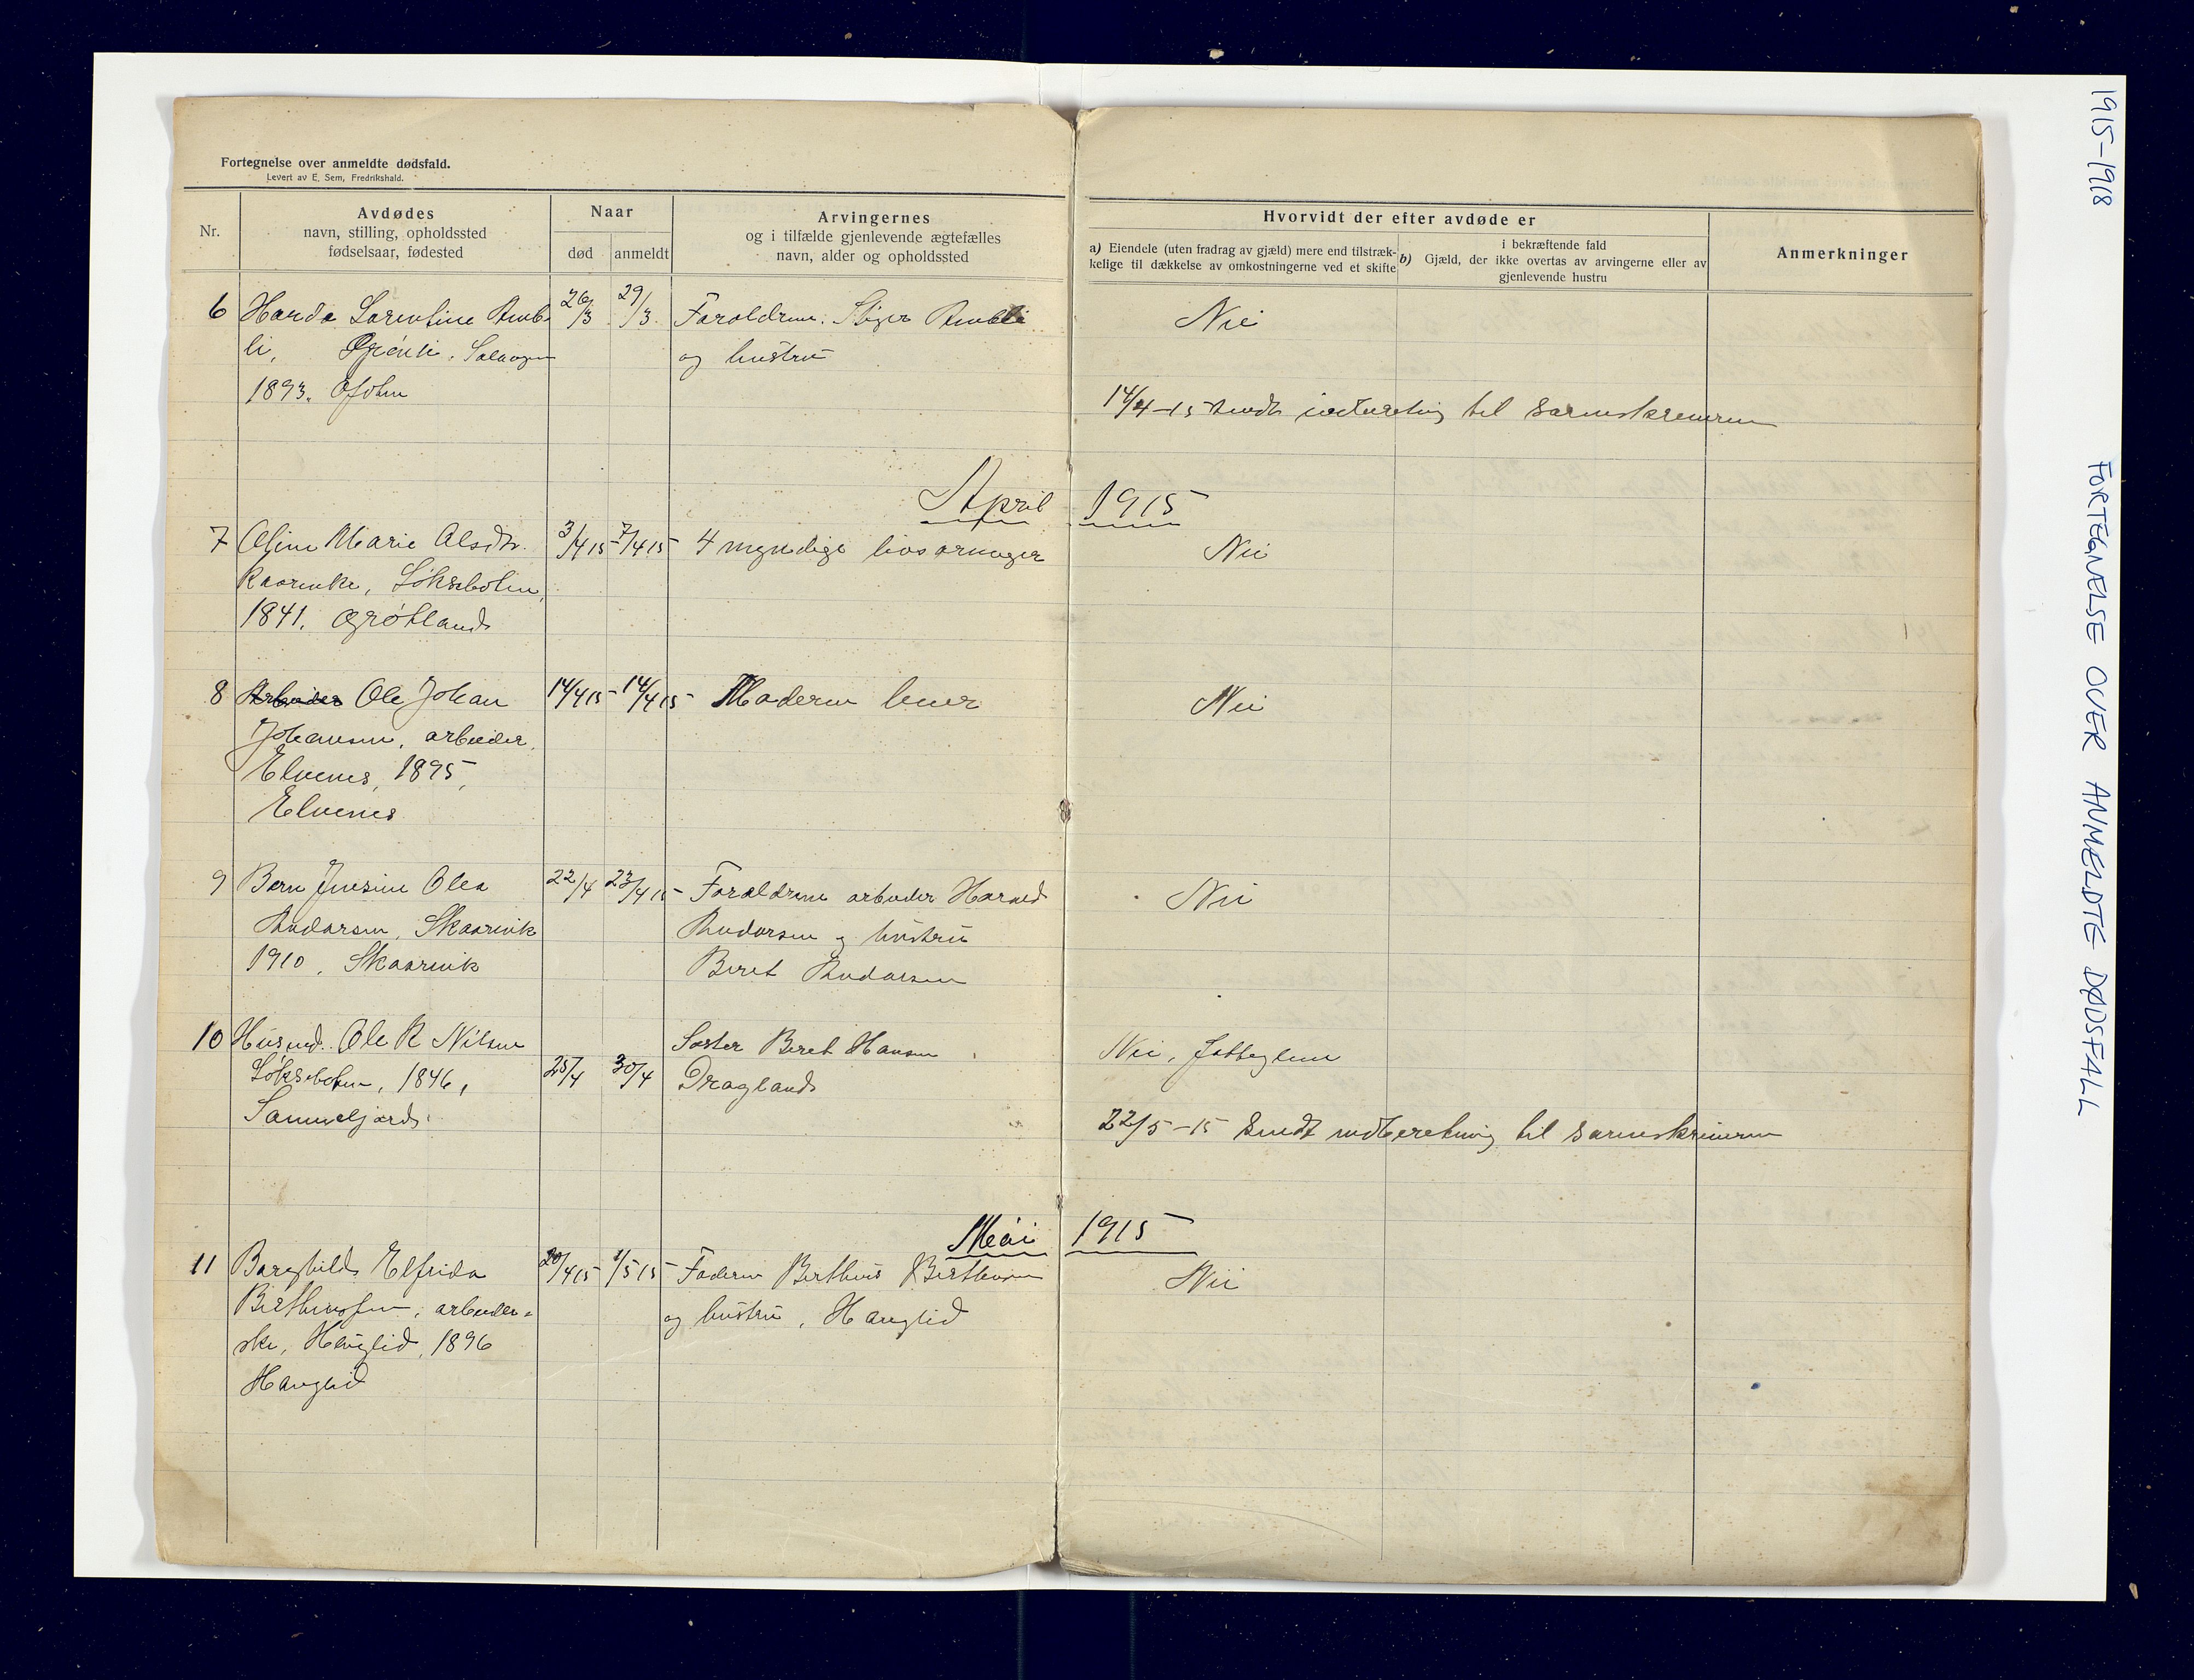 Fortegnelse over anmeldte dødsfald.
Levert av E. Sem, Fredrikshald.
Nr.
Avdødes
navn, stilling, opholdssted
fødselsaar, fødested
Naar
død
anmeldt
Arvingernes
og i tilfælde gjenlevende ægtefælles
navn, alder og opholdssted
Hvorvidt der efter avdøde er
a) Eiendele (uten fradrag av gjæld) mere end tilstræk-
kelige til dækkelse av omkostningerne ved et skifte
i bekræftende fald
b) Gjæld, der ikke overtas av arvingerne eller av
gjenlevende hustru
Anmerkninger
6 Lorentine 26/3 29/3 Forældrene. Nei
li, og hustru
1893.
14/4-15 sendt indberetning til sorenskriveren
April 1915
7 Marie Olsdtr. 3/4 15 7/4 15 4 myndige livsarvinger Nei
Løksebotn,
1841. Grøtland
8 Arbeider Ole Johan 14/4 15 14/4 15 Moderen lever Nei
Johansen, arbeider,
Elvenes, 1895,
Elvenes
9 Barn Jensine Olea 22/4 23/4 15 Forældrene arbeider Nei
Andersen, Skaarvik og hustru
1910, Skaarvik Beret Andersen
10 Husmd. Ole R Nilsen Søster Beret Hansen Nei, fattiglem
Løksebotn, 1846, 25/4 30/4 Dragland
22/5-15 Sendt indberetning til sorenskriveren
Mai 1915
11 Borghild Elfrida 20/4 15 1/5 15 Faderen Bertheus Bertheusen Nei
Bertheussen, arbeider-
ske, Hauglid, 1896 og hustru, Hauglid
Hauglid
1915-1918 FORTEGNELSE OVER ANMELDTE DØDSFALL